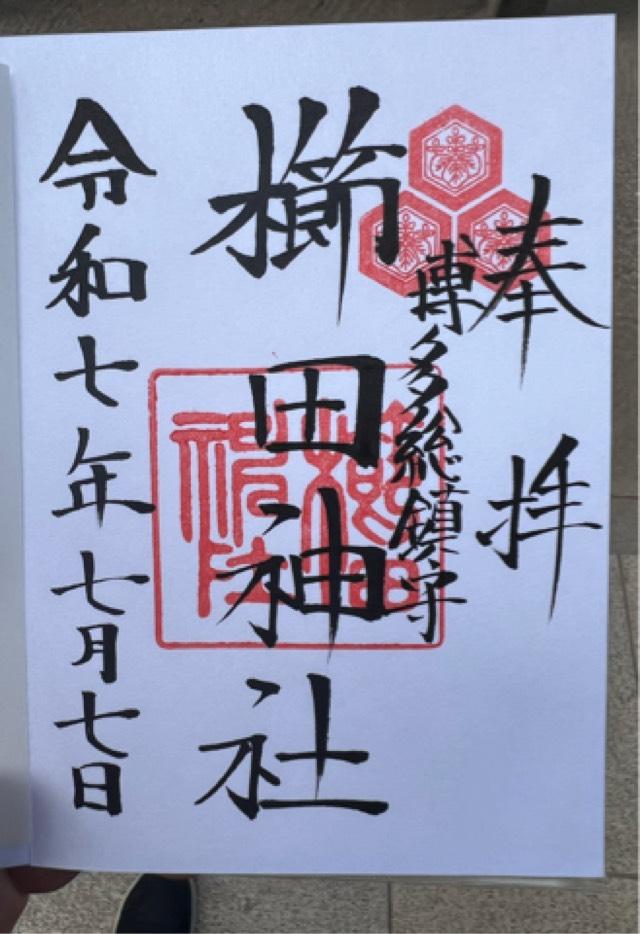 奉拝
博多総鎮守
櫛田神社
令和七年七月七日